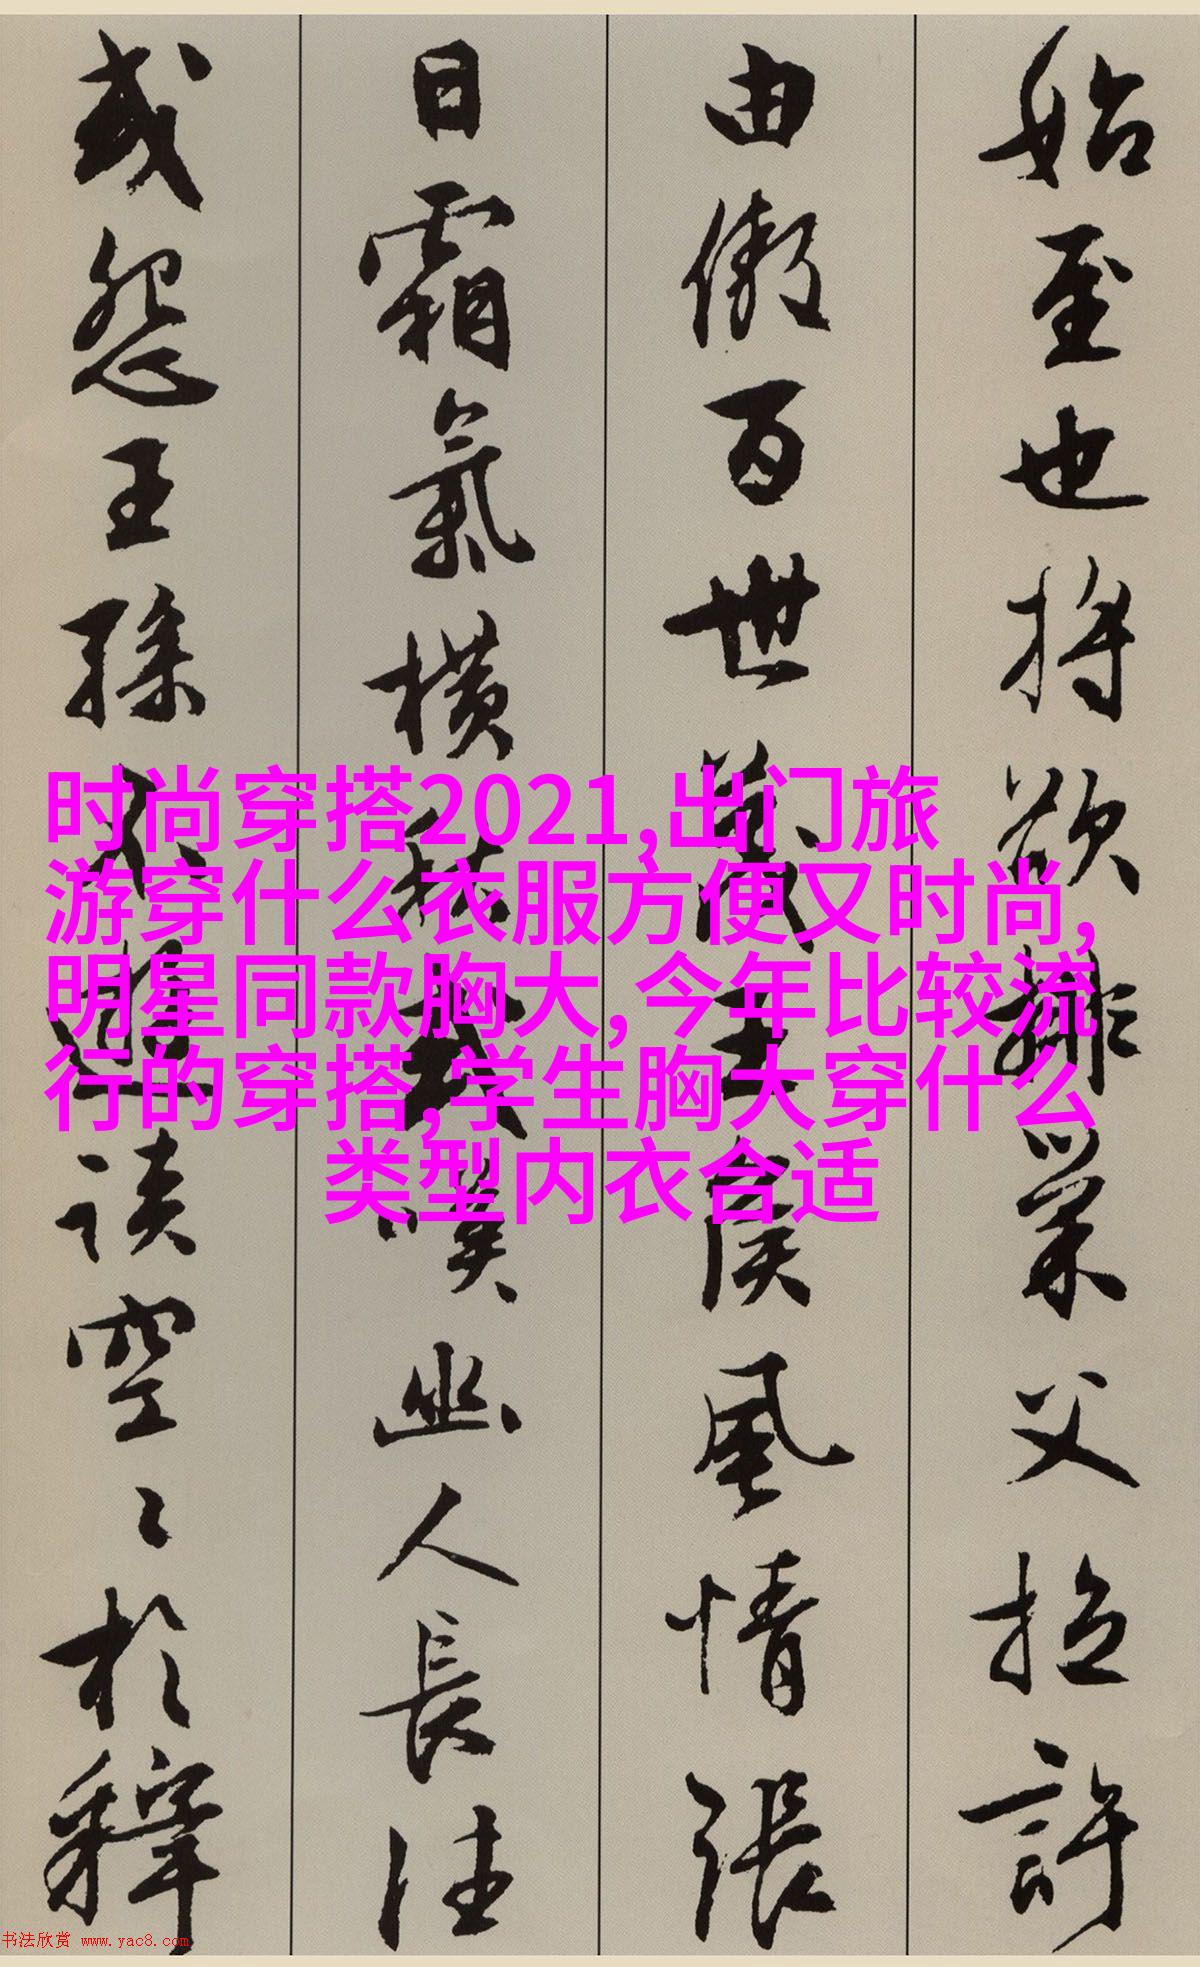 始至也將欲排巢父拉許
由傲百世蔑王侯風情張
日霜氣橫秋或嘆幽人長往
或怨王孫不遊談空〻於釋
时尚穿搭2021,出门旅
游穿什么衣服方便又时尚,
明星同款胸大,今年比较流
行的穿搭,学生胸大穿什么
类型内衣合适
书法欣赏 www.yac8.com